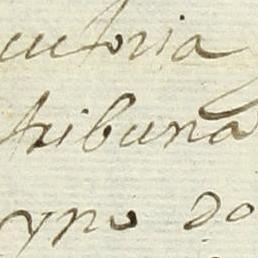 cutoria
tribuna
ypo do